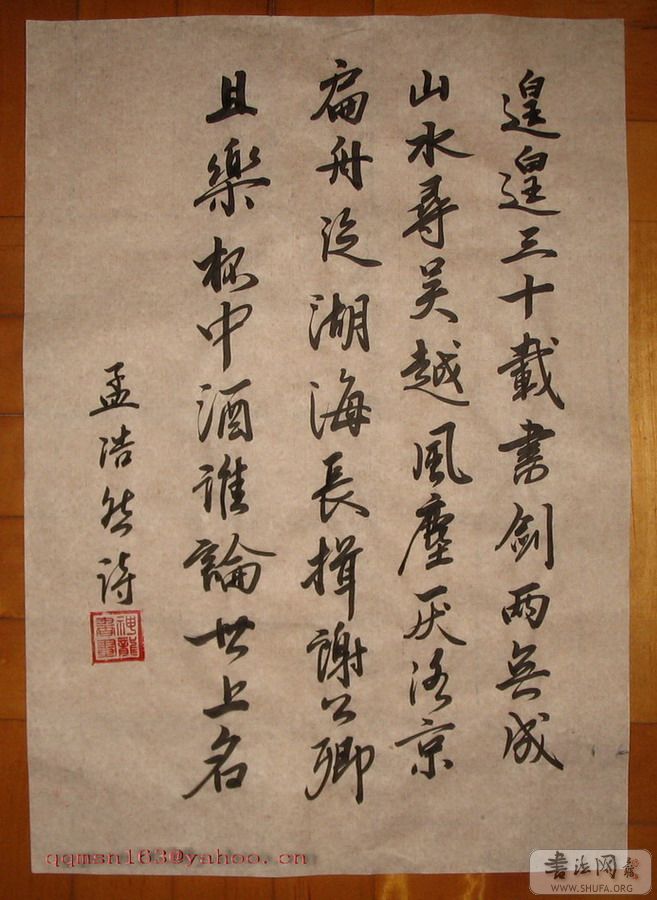 遑遑三十載書劍兩無成
山水尋吴越風塵厌洛京
扁舟泛湖海長揖謝公卿
且樂杯中酒誰論世上名
孟浩然詩
神龍書畫
qqmsn163@yahoo.cn
书法网
WWW.SHUFA.ORG